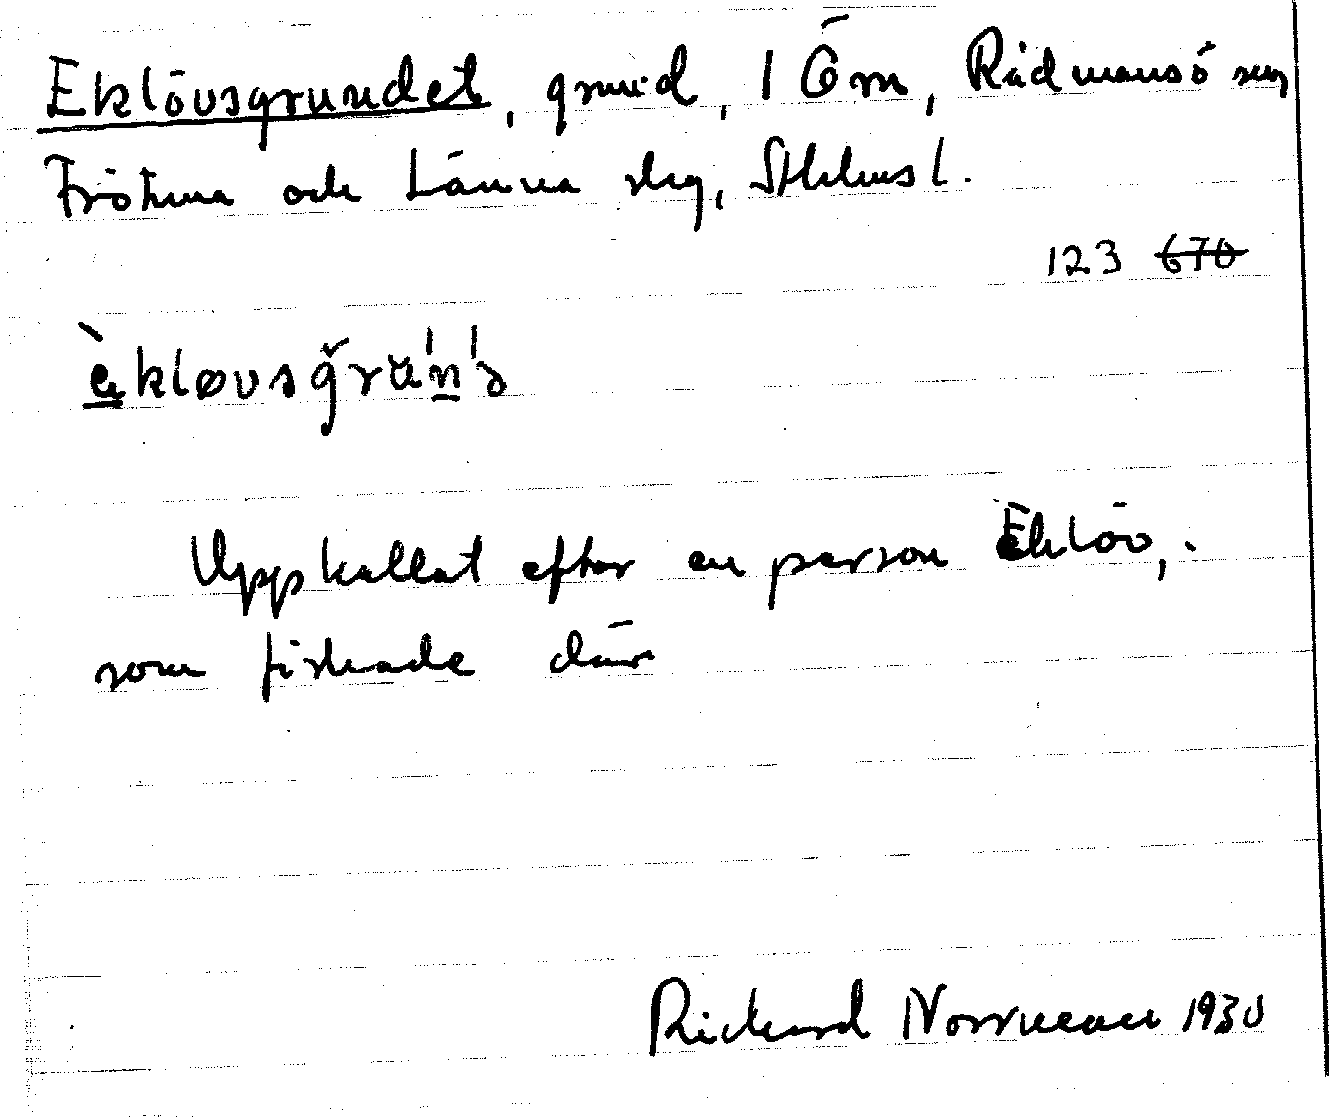 Eklövsgrundet, grund, 1 Öm, Rådmansö sn,
Frötuna och Länna skg, Sthlms l.
123 670
Uppkallat efter en person Eklöv,
som fiskade där
Rickard Norrman 1930